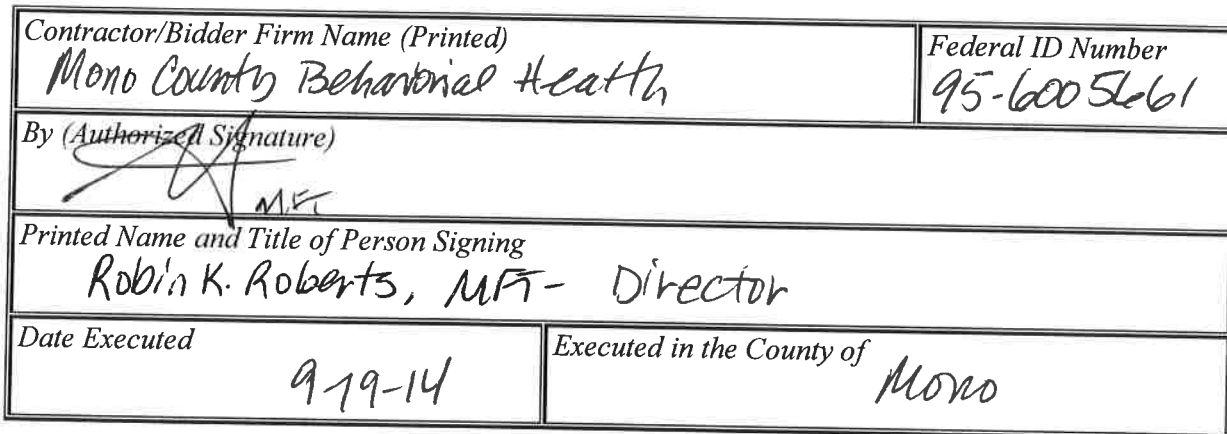 Contractor/Bidder Firm Name (Printed)
Mono County Behavorial Heatth
Federal ID Number
95-6005661
By (Authorized Signature)
MFT
Printed Name and Title of Person Signing
Robin K. Roberts, MFT- Director
Date Executed
9-19-14
Executed in the County of
Mono